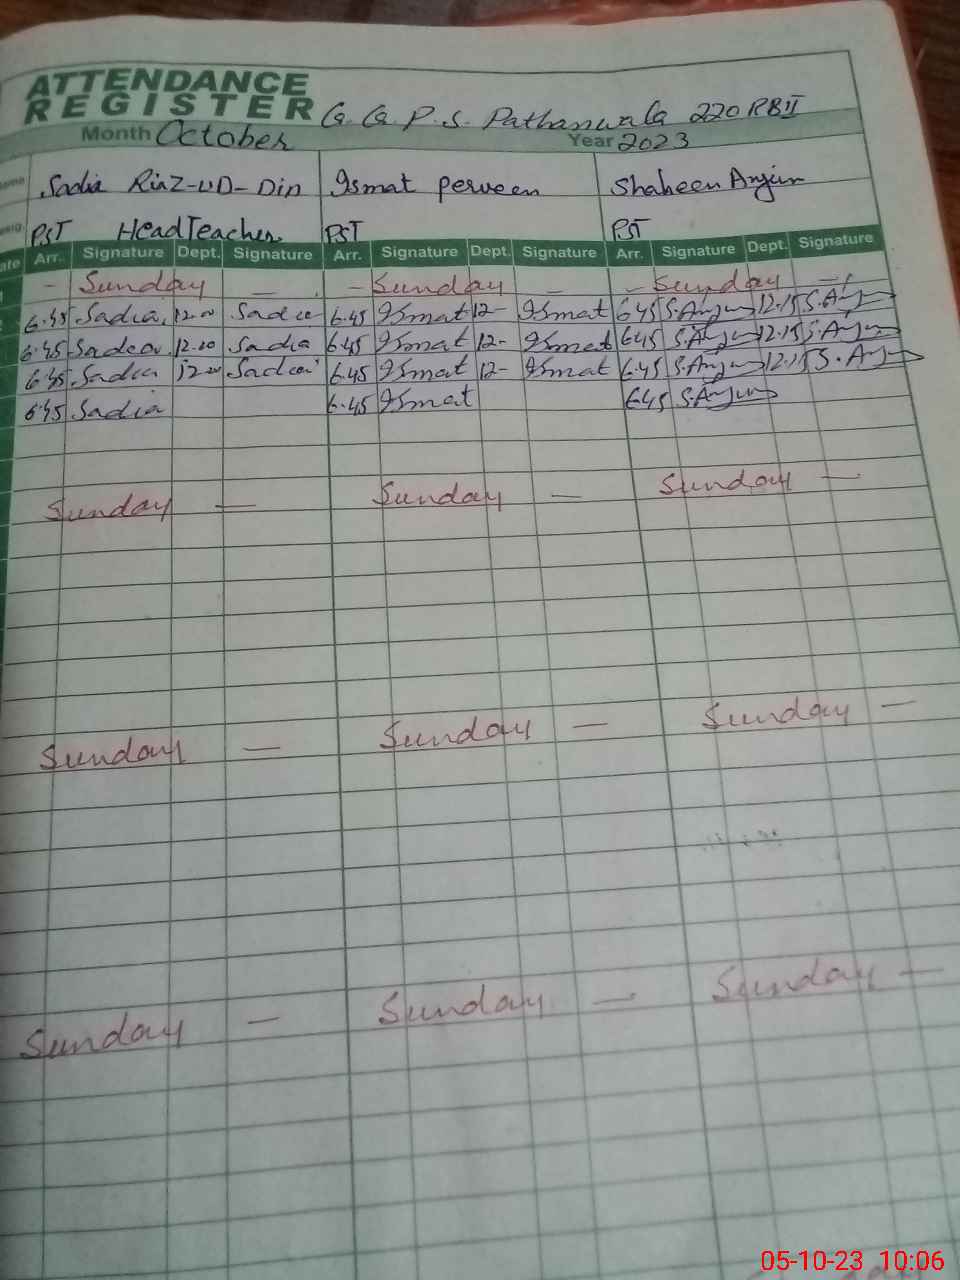 ATTENDANCE
REGISTER G.G.P.S. Pathanwala 220 RB II
Month October Year 2023
Sadia Riaz-UD-Din Ismat perveen Shaheen Anjum
PST Head Teacher PST PST
Arr. Signature Dept. Signature Arr. Signature Dept. Signature Arr. Signature Dept. Signature
- Sunday - - Sunday - - Sunday -
6.45 Sadia 12.00 Sadia 6.45 Ismat 12- Ismat 6.45 S.Anjum 12.15 S.Anjum
6.45 Sadia 12.00 Sadia 6.45 Ismat 12- Ismat 6.45 S.Anjum 12.15 S.Anjum
6.45 Sadia 12.00 Sadia 6.45 Ismat 12- Ismat 6.45 S.Anjum 12.15 S.Anjum
6.45 Sadia 6.45 Ismat 6.45 S.Anjum
Sunday - Sunday - Sunday -
Sunday - Sunday - Sunday -
Sunday - Sunday - Sunday -
05-10-23 10:06